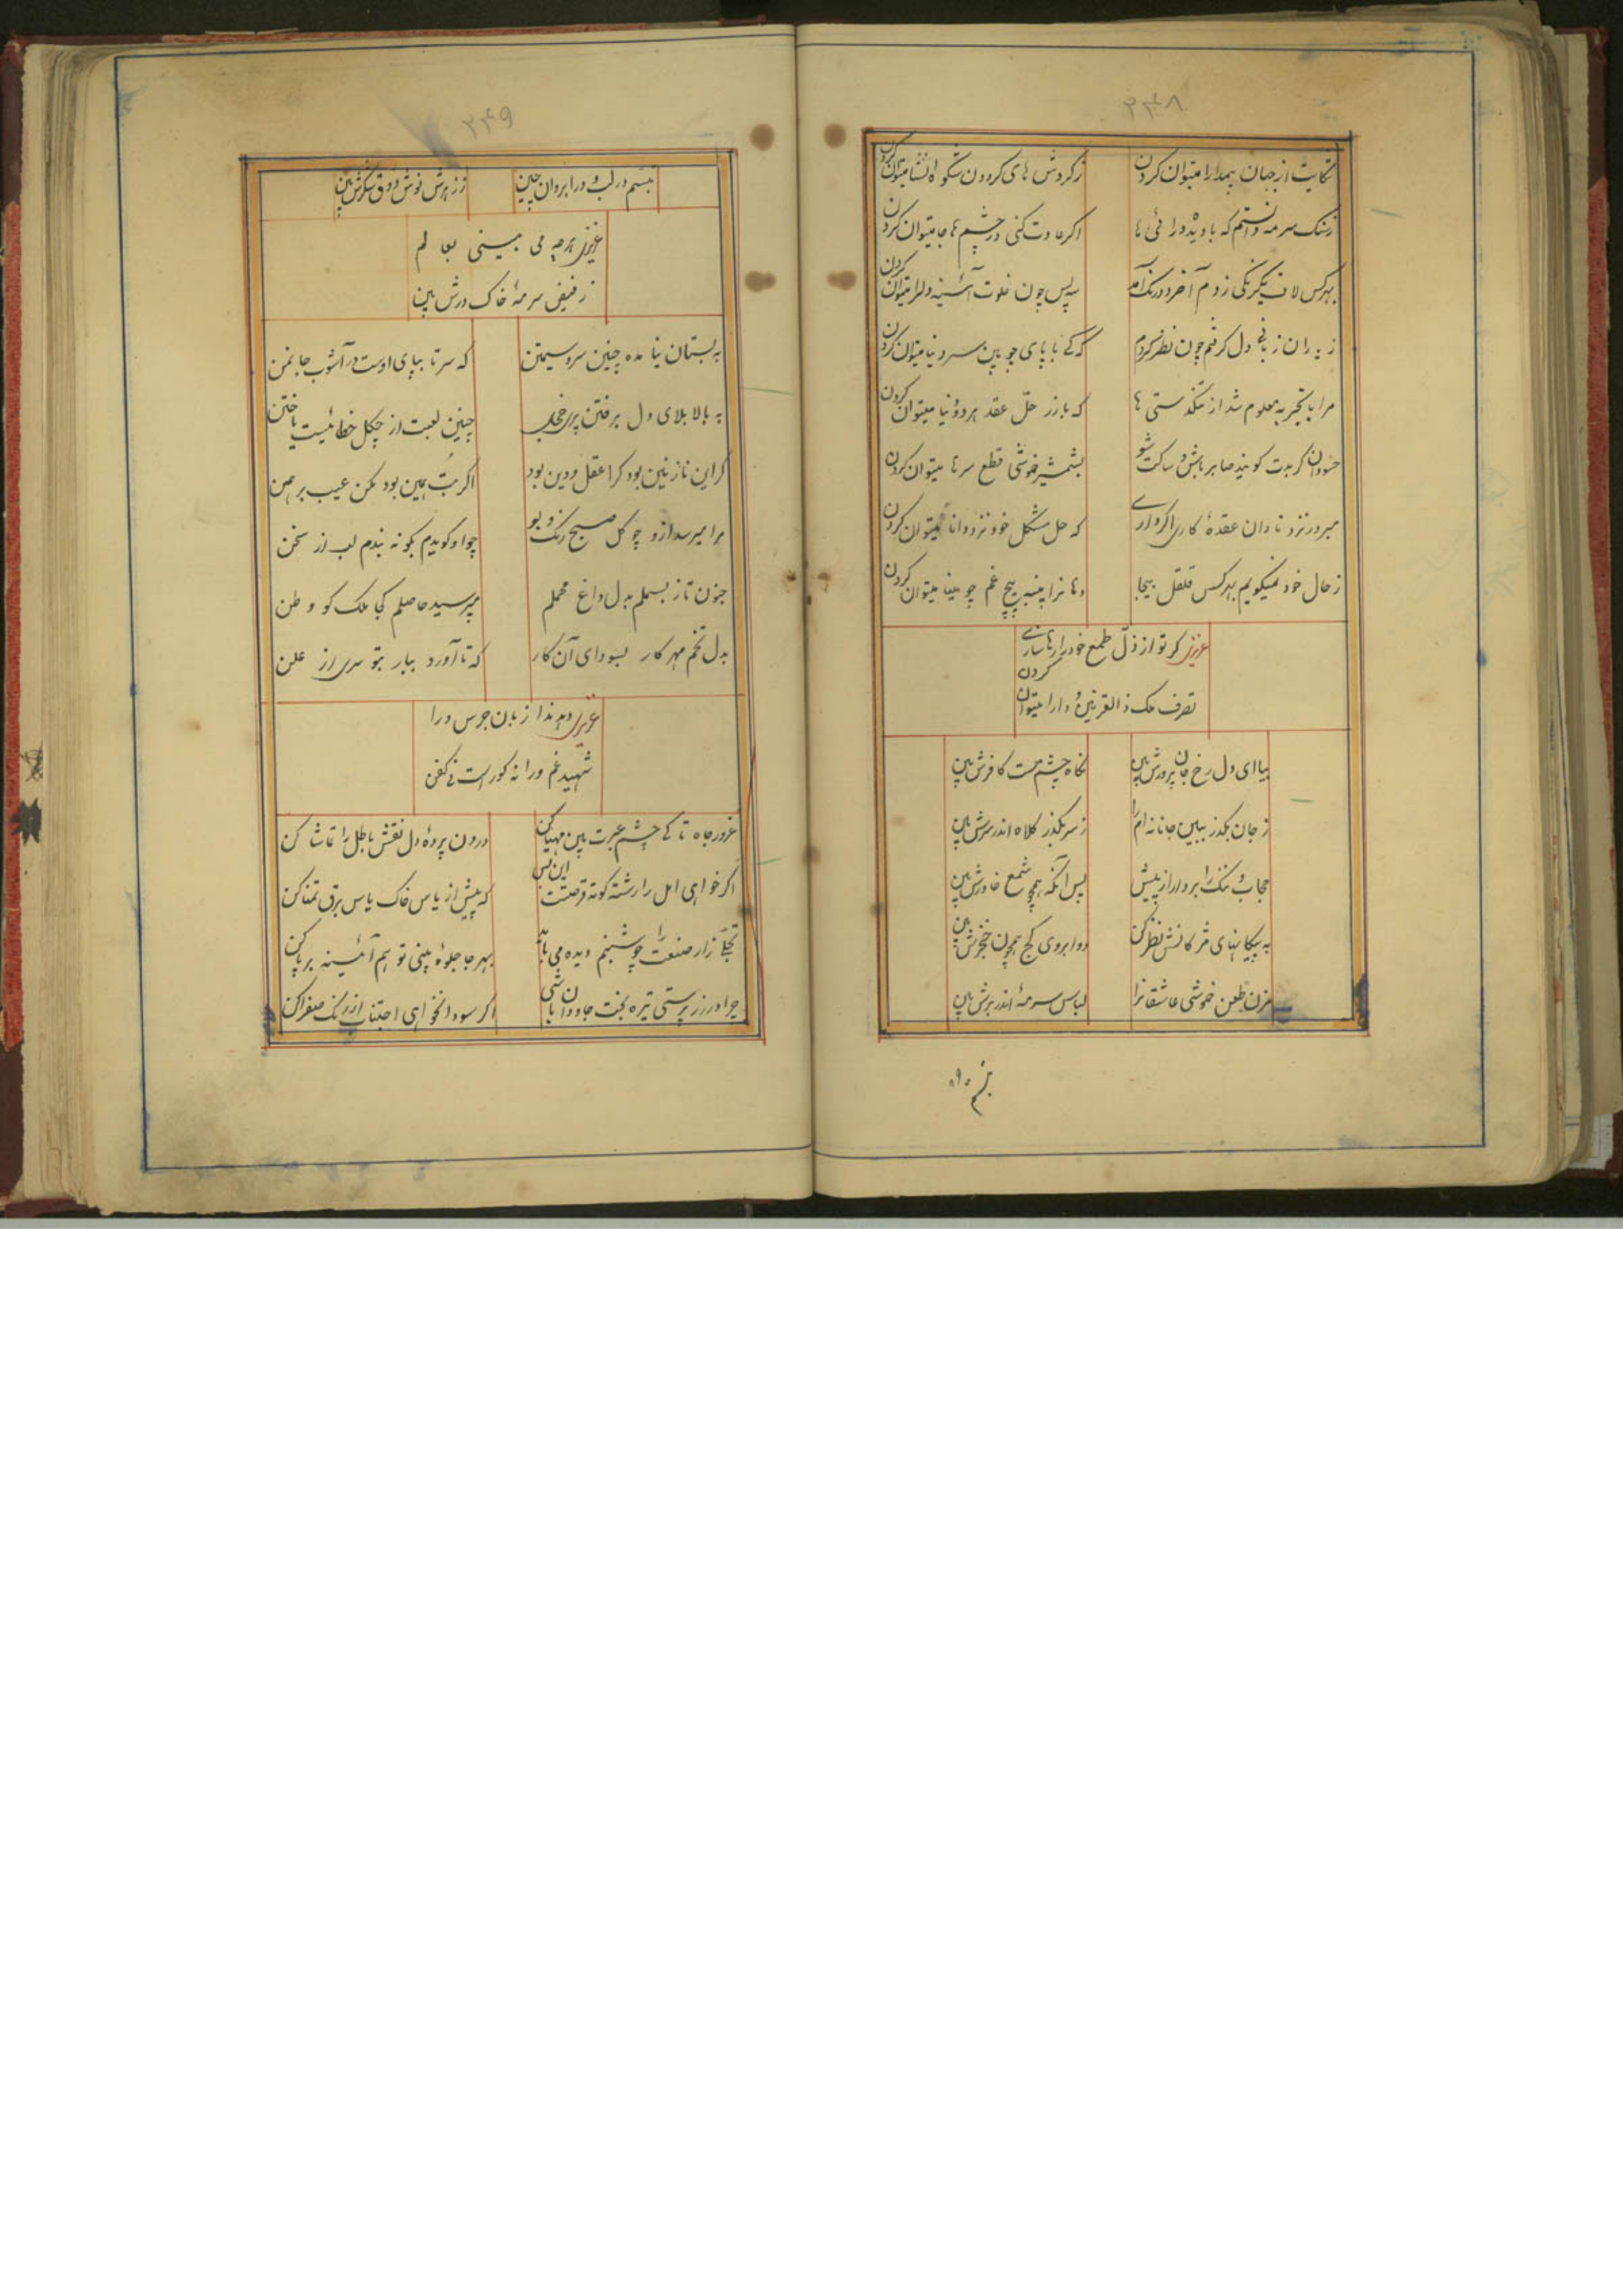 ۲۴۸
شکایت از جهان بیمدارا میتوان کردن
ز کردش های کردون شکوه انشا میتوان کردن
ز سنک سرمه دانستم که با دیده درائی ها
اکر عادت کنی در چشم ها جا میتوان کردن
بهر کس لاف یکرنکی زدم آخر دورنک آمد
سپس چون خلوت آئینه دلرا میتوان کردن
ز یاران زبانی دل کرفتم چون نظر کردم
که کے با پای چوبین سیر دنیا میتوان کردن
مرا با تجربه معلوم شد از تنکدستی ها
که با زر حلّ عقد هر دو دنیا میتوان کردن
حسودان کر بدت کویند صابر باش و ساکت شو
بشمشیر خموشی قطع سرها میتوان کردن
مبر در نزد نادان عقدهٔ کاری اکر داری
که حل مشکل خود نزد دانا میتوان کردن
ز حال خود نمیکویم بهر کس قلقل بیجا
دهانرا پنبه پیچ غم چو مینا میتوان کردن
عزیزی کر تو از ذلّ طمع خودرا رها سازی
تصرف ملک ذالقرنین و دارا میتوان کردن
بیا ای دل رخ جان پرورش بین
نکاه چشم مست کافرش بین
ز جان بکذر ببین جانانه ام را
ز سر بکذر کلاه اندر سرش بین
حجاب و ننک را بردار از پیش
پس آنکه همچو شمع خاورش بین
به پیکانهای مژکانش نظر کن
دو ابروی کج همچون خنجرش بین
مزن طعن خموشی عاشقانرا
لباس سرمهٔ اندر برش بین
تبسم در
۲۴۹
تبسم در لب و در ابروان چین
ز زهرش نوش و ذوق شکرش بین
عزیزی هر چه می بینی بعالم
ز فیض سرمهٔ خاک درش بین
به بستان نیامده چنین سرو سیمتن
که سر تا بپای اوست در آشوب جانمن
به بالا بلای دل برفتن پری خجل
چنین لعبت از چکل خطا نیست یا ختن
کر این نازنین بود کرا عقل و دین بود
اکر بُت همین بود مکن عیب برهمن
مرا میرسد ازو چو کل صبح رنک و بو
چو او کویدم بکو نه بندم لب از سخن
جنون تاز بسملم بدل داغ محملم
مپرسید حاصلم کجا ملک کو وطن
بدل تخم مهر کار بسودای آن کار
که تا آورد ببار بتو سری از علن
عزیزی دهد ندا زبان جرس درا
شهید غم ورا نه کور است نی کفن
غرور جاه تا کے چشم عبرت بین مهیا کن
درون پردهٔ دل نقش باطل را تماشا کن
اکر خواهی امل را رشته کوته فرصتت این بس
که پیش از یاس خاک یاس برق تمنا کن
تجلّے زار صنعت را چو شبنم دیده می باید
بهر جا جلوهٔ بینی تو هم آئینه بر پا کن
چرا در زر پرستی تیره بخت جاودان باشی
اکر سودا نخواهی اجتناب از رنک صفرا کن